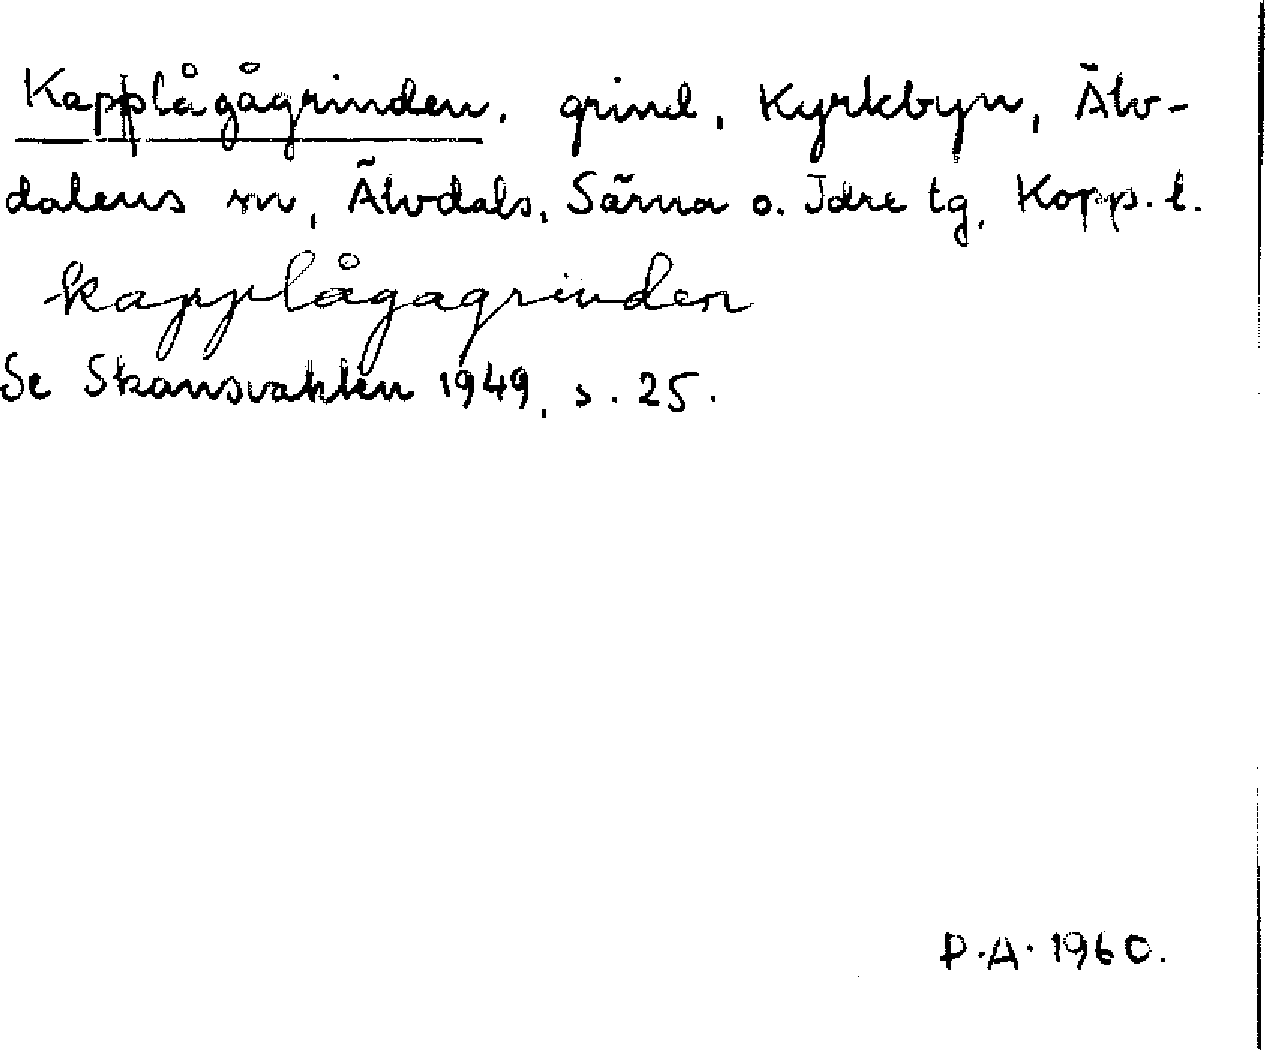 Kapplågågrinden, grind, Kyrkbyn, Älv-
dalens sn, Älvdals, Särna o. Idre tg, Kopp. l.
kapplågagrinden
Se Skansvakten 1949, s. 25.
P.A. 1960.